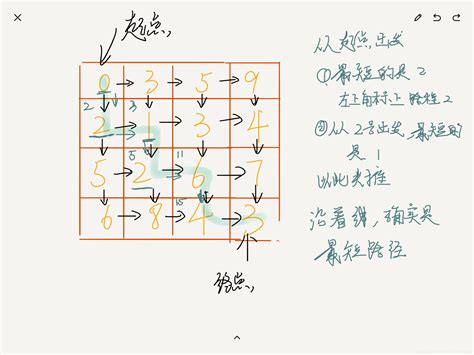 起点
0 3 5 9
2 3
2 1 3 4
5 11
5 2 6 7
15
6 8 4 3
终点
从起点出发
①最短的是 2
左上角标上路径2
②从2号出发,最短的
是 1
以此类推
沿着线,确实是
最短路径